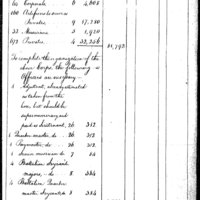 64 Corporals 6 4,608
160 Artificers
Privates 9 17,280
33 Musicians 5 1,920
672 Privates 4 32,256
81,792
To complete the organization of the
above Corps the following
Officers are necessary—
1 Adjutant, already estimated
as taken from the
line, but should be
supernumerary and
paid as lieutenant, 26 312
1 Quarter master, do 26 312
1 Paymaster, do 26 312
1 Senior musician do 7 84
4 Battalion Sergeant
majors, do 8 384
4 Battalion Quarter
master Sergeants do 8 384